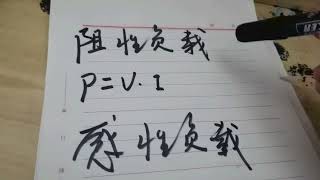 阻性负载
P=U·I
感性负载